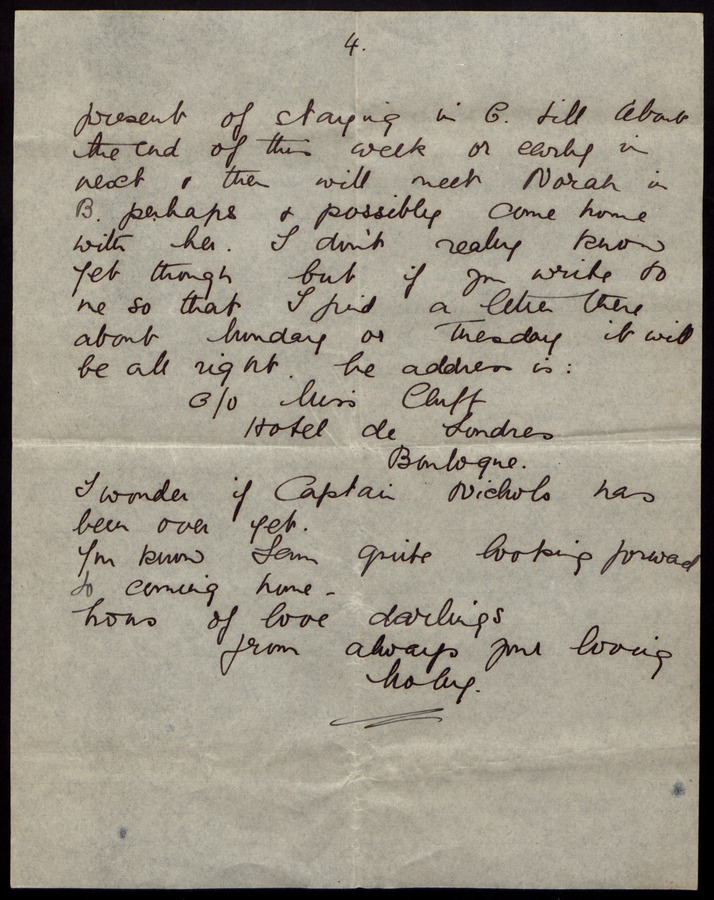 4.
present of staying in B. till about
the end of this week or early in
next & then will meet Norah in
B. perhaps & possibly come home
with her. I don't really know
yet though but if you write to
me so that I find a letter there
about Monday or Tuesday it will
be all right. The address is:
C/o Miss Cluff
Hotel de Londres
Boulogne.
I wonder if Captain Nichols has
been over yet.
You know I am quite looking forward
to coming home -
Tons of love darlings
from always your loving
Molly.